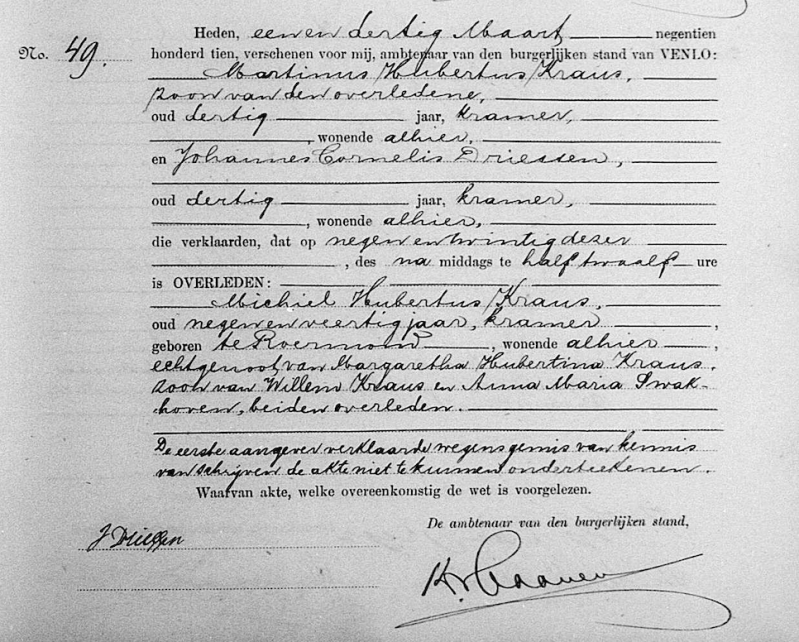 Heden, een en dertig Maart negentien
No. 49. honderd tien, verschenen voor mij, ambtenaar van den burgerlijken stand van VENLO:
Martinus Hubertus Kraus,
zoon van den overledene,
oud dertig jaar, kramer,
, wonende alhier,
en Johannes Cornelis Driessen,
oud dertig jaar, kramer,
, wonende alhier,
die verklaarden, dat op negen en twintig dezer
, des na middags te half twaalf ure
is OVERLEDEN:
Michiel Hubertus Kraus,
oud negen en veertig jaar, kramer,
geboren te Roermond, wonende alhier,
echtgenoot van Margaretha Hubertina Kraus,
zoon van Willem Kraus en Anna Maria Swak-
hoven, beiden overleden.
De eerste aangever verklaarde wegens gemis van kennis
van schrijven de akte niet te kunnen onderteekenen.
Waarvan akte, welke overeenkomstig de wet is voorgelezen.
De ambtenaar van den burgerlijken stand,
J Driessen